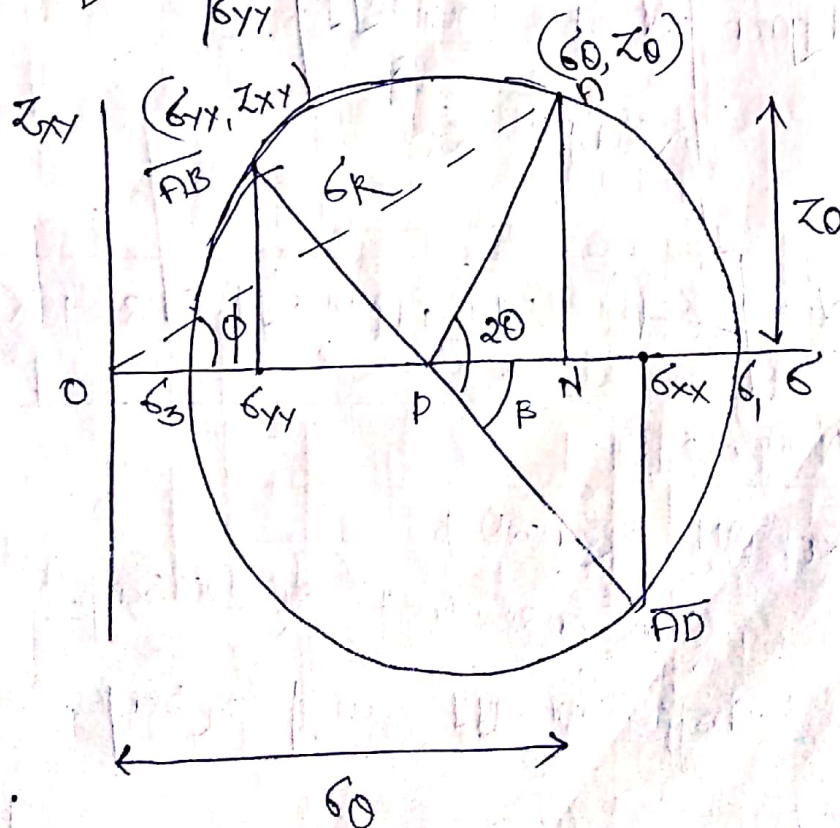 σyy
(σθ, τθ)
A
(σyy, τxy)
τxy
AB
σR
τθ
φ
2θ
O
σ3
σyy
P
β
N
σxx
σ1
σ
AD
σθ